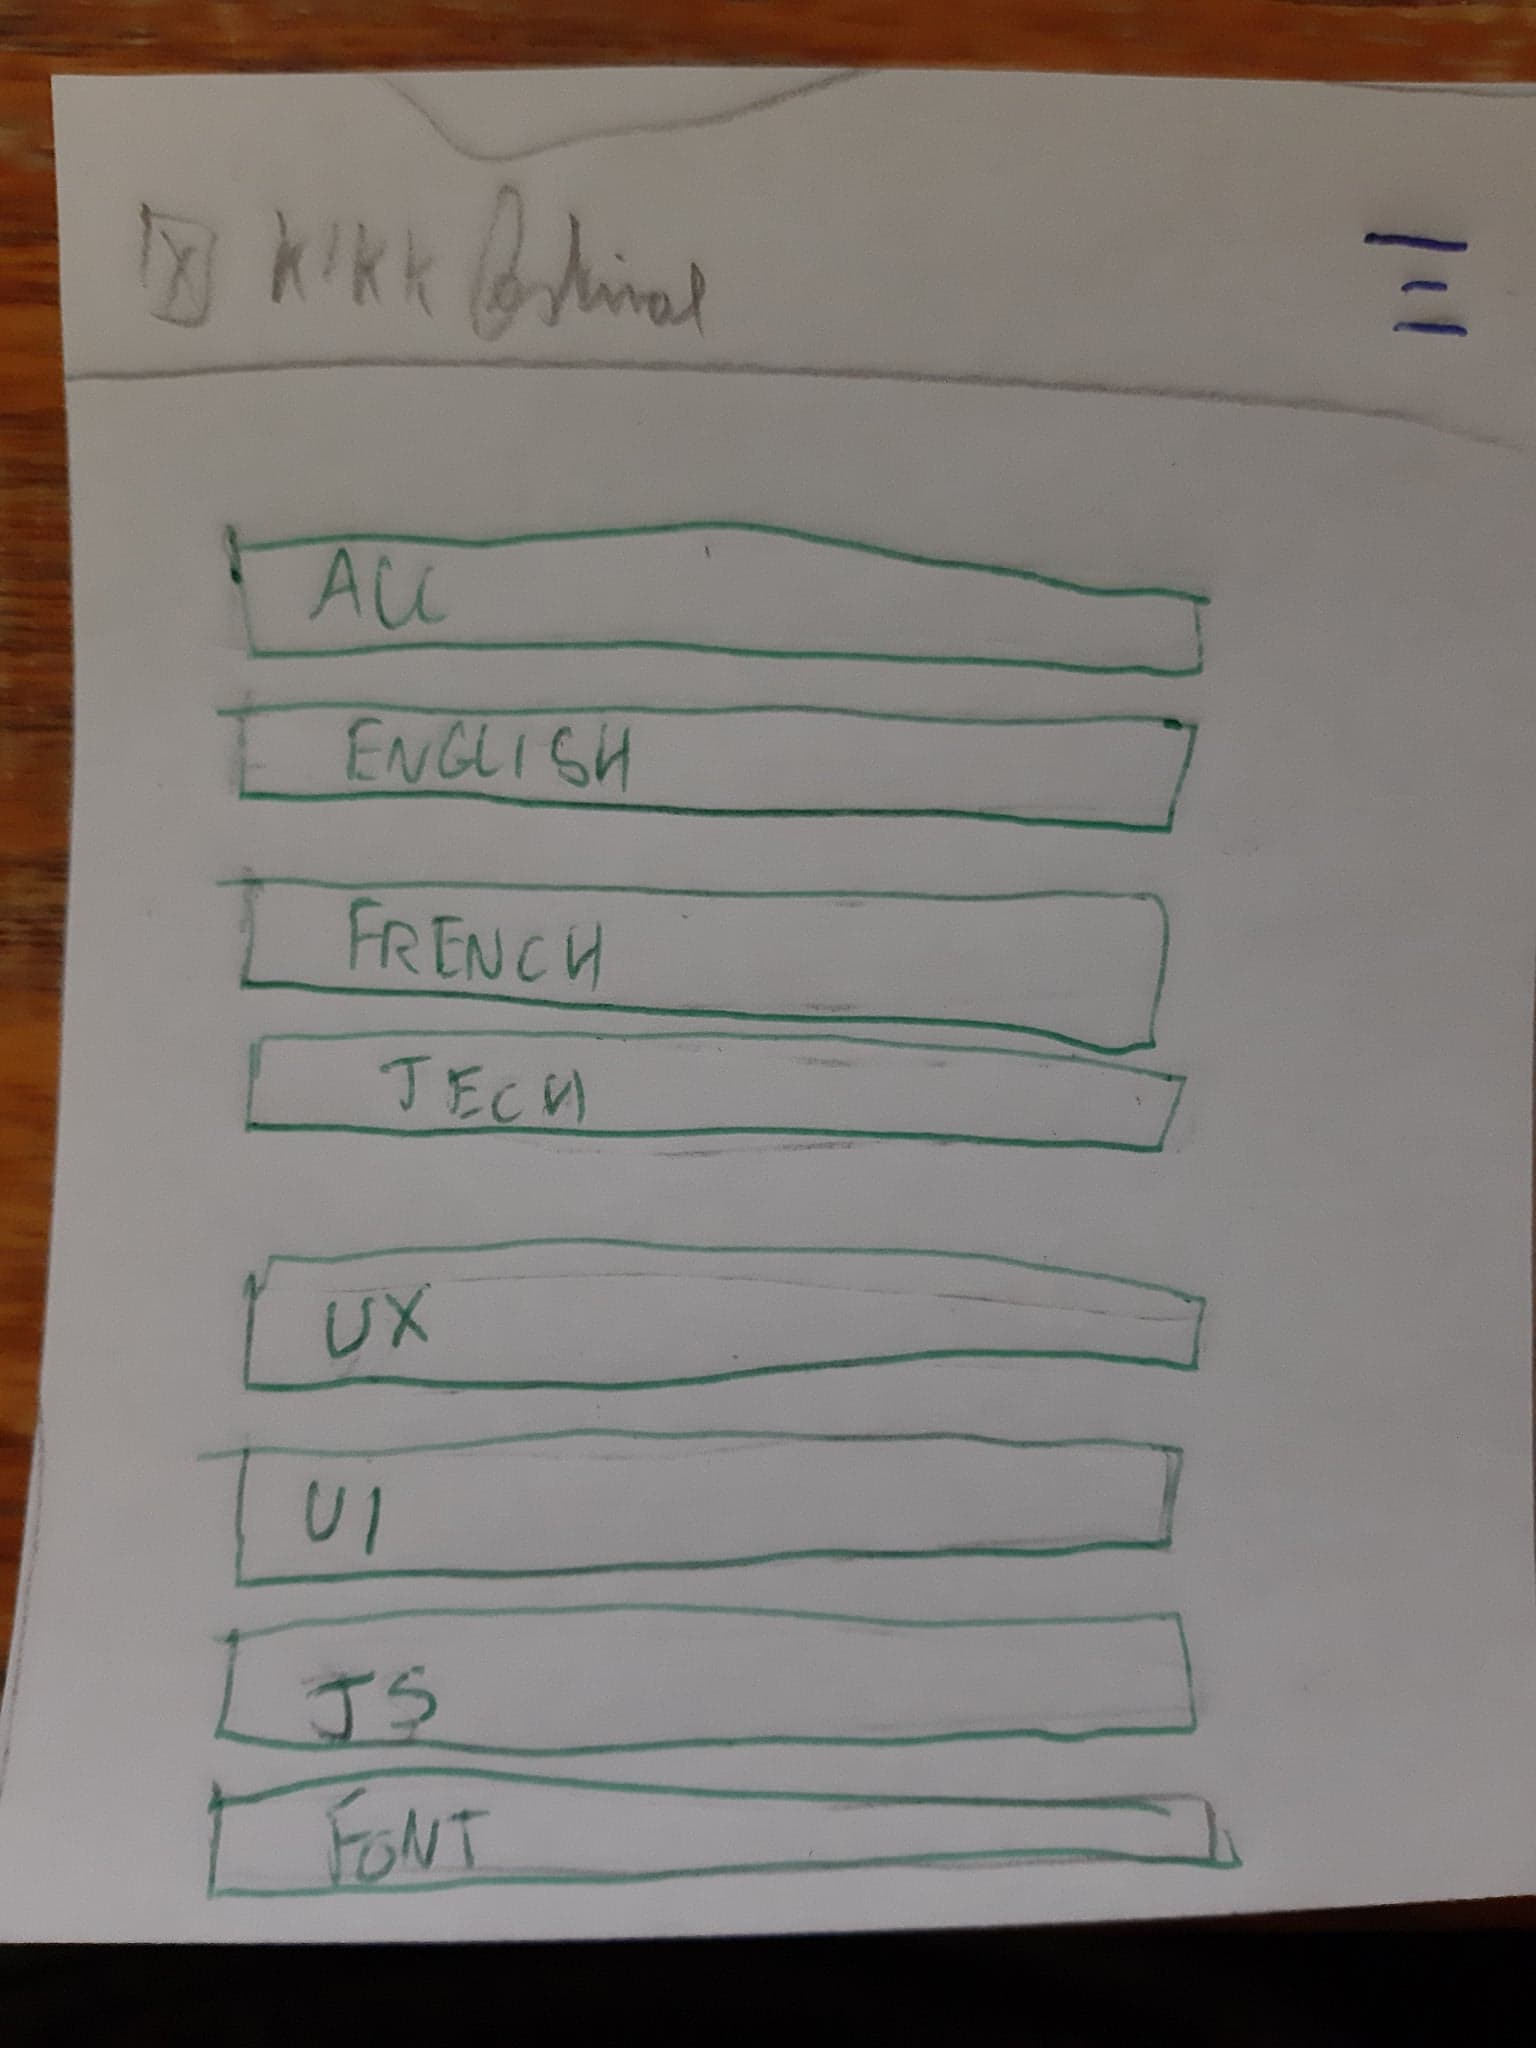 X KIKK Festival
ALL
ENGLISH
FRENCH
TECH
UX
UI
JS
FONT